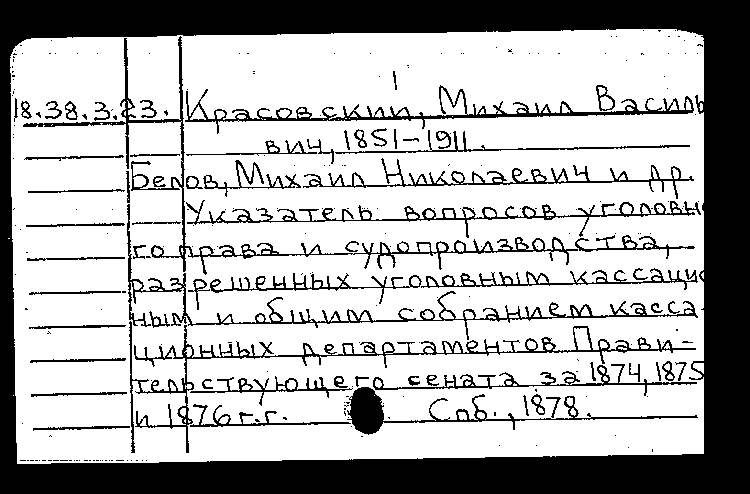 1
18.38.3.23. Красовский, Михаил Василь
вич, 1851-1911.
Белов, Михаил Николаевич и др.
Указатель вопросов уголовн
го права и судопроизводства,
разрешенных уголовным кассацио
ным и общим собранием касса-
ционных департаментов Прави-
тельствующего сената за 1874, 1875
и 1876 г.г. Спб., 1878.